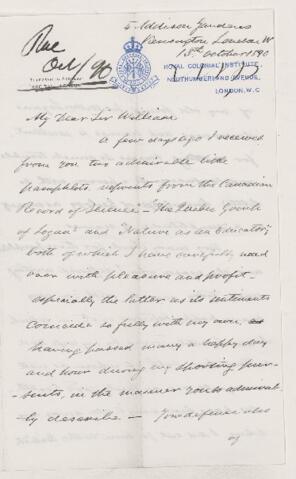 Rae
Oct/90
4 Addison Gardens
Kensington, London, W
15th October 1890
ROYAL COLONIAL INSTITUTE,
NORTHUMBERLAND AVENUE,
LONDON, W.C
My Dear Sir William
A few days ago I received
from you two admirable little
pamphlets, reprints from the "Canadian
Record of Science" — "The Quebec Group
of Logan" and "Nature as an Educator";
both of which I have carefully read
over with pleasure and profit —
especially the latter as its sentiments
coincide so fully with my own,
having passed many a happy day
and hour during my shooting pur-
suits, in the manner you so admirab-
ly describe — Your defence also